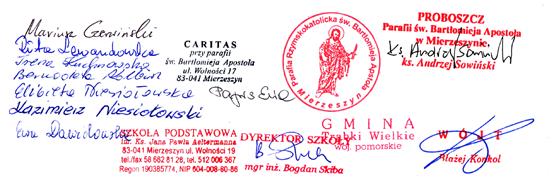 Mariusz Czerwiński
Rita Lewandowska
Irena
Bernadeta
Elżbieta Niesiołowska
Kazimierz Niesiołowski
Ewa Dawidowska
CARITAS
przy parafii
św. Bartłomieja Apostoła
ul. Wolności 17
83-041 Mierzeszyn
Parafia Rzymskokatolicka św. Bartłomieja Apostoła
Mierzeszyn
PROBOSZCZ
Parafii św. Bartłomieja Apostoła
w Mierzeszynie
ks. Andrzej Sowiński
SZKOŁA PODSTAWOWA
im. Ks. Jana Pawła Aeltermanna
83-041 Mierzeszyn ul. Wolności 19
tel./fax 58 682 81 28, tel. 512 006 367
Regon 190385774, NIP 604-008-60-86
DYREKTOR SZKOŁY
mgr inż. Bogdan Skiba
GMINA
Trąbki Wielkie
woj. pomorskie
WÓJT
Błażej Konkol